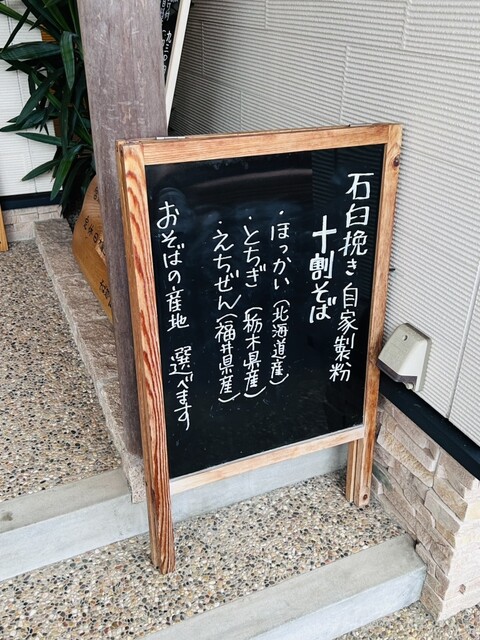 石臼挽き自家製粉
十割そば
・ほっかい(北海道産)
・とちぎ(栃木県産)
・えちぜん(福井県産)
おそばの産地 選べます